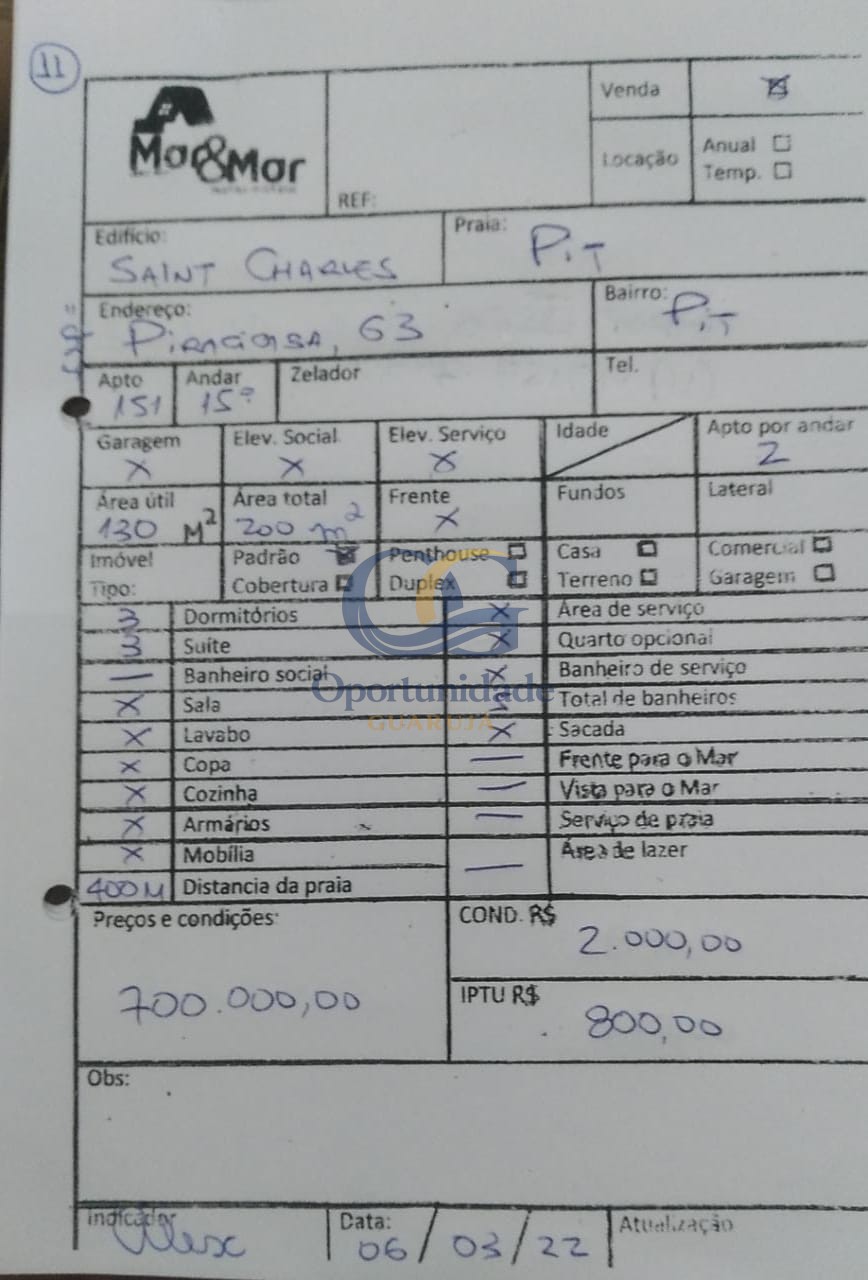 11
Mar&Mar
REF:
Venda X
Locação
Anual
Temp.
Edifício: SAINT CHARLES
Praia: PIT
Endereço: , 63
Bairro: PIT
Apto 151
Andar 15º
Zelador
Tel.
Garagem X
Elev. Social X
Elev. Serviço X
Idade
Apto por andar 2
Área útil 130 M²
Área total 200 m²
Frente X
Fundos
Lateral
Imóvel Tipo:
Padrão X
Penthouse
Casa
Comercial
Cobertura
Duplex
Terreno
Garagem
3 Dormitórios
X Área de serviço
3 Suíte
X Quarto opcional
— Banheiro social
X Banheiro de serviço
X Sala
Total de banheiros
X Lavabo
X Sacada
X Copa
— Frente para o Mar
X Cozinha
— Vista para o Mar
X Armários
— Serviço de praia
X Mobília
— Área de lazer
400M Distancia da praia
Oportunidade
GUARUJÁ
Preços e condições: 700.000,00
COND. R$ 2.000,00
IPTU R$ 800,00
Obs:
Indicador Alex
Data: 06/03/22
Atualização